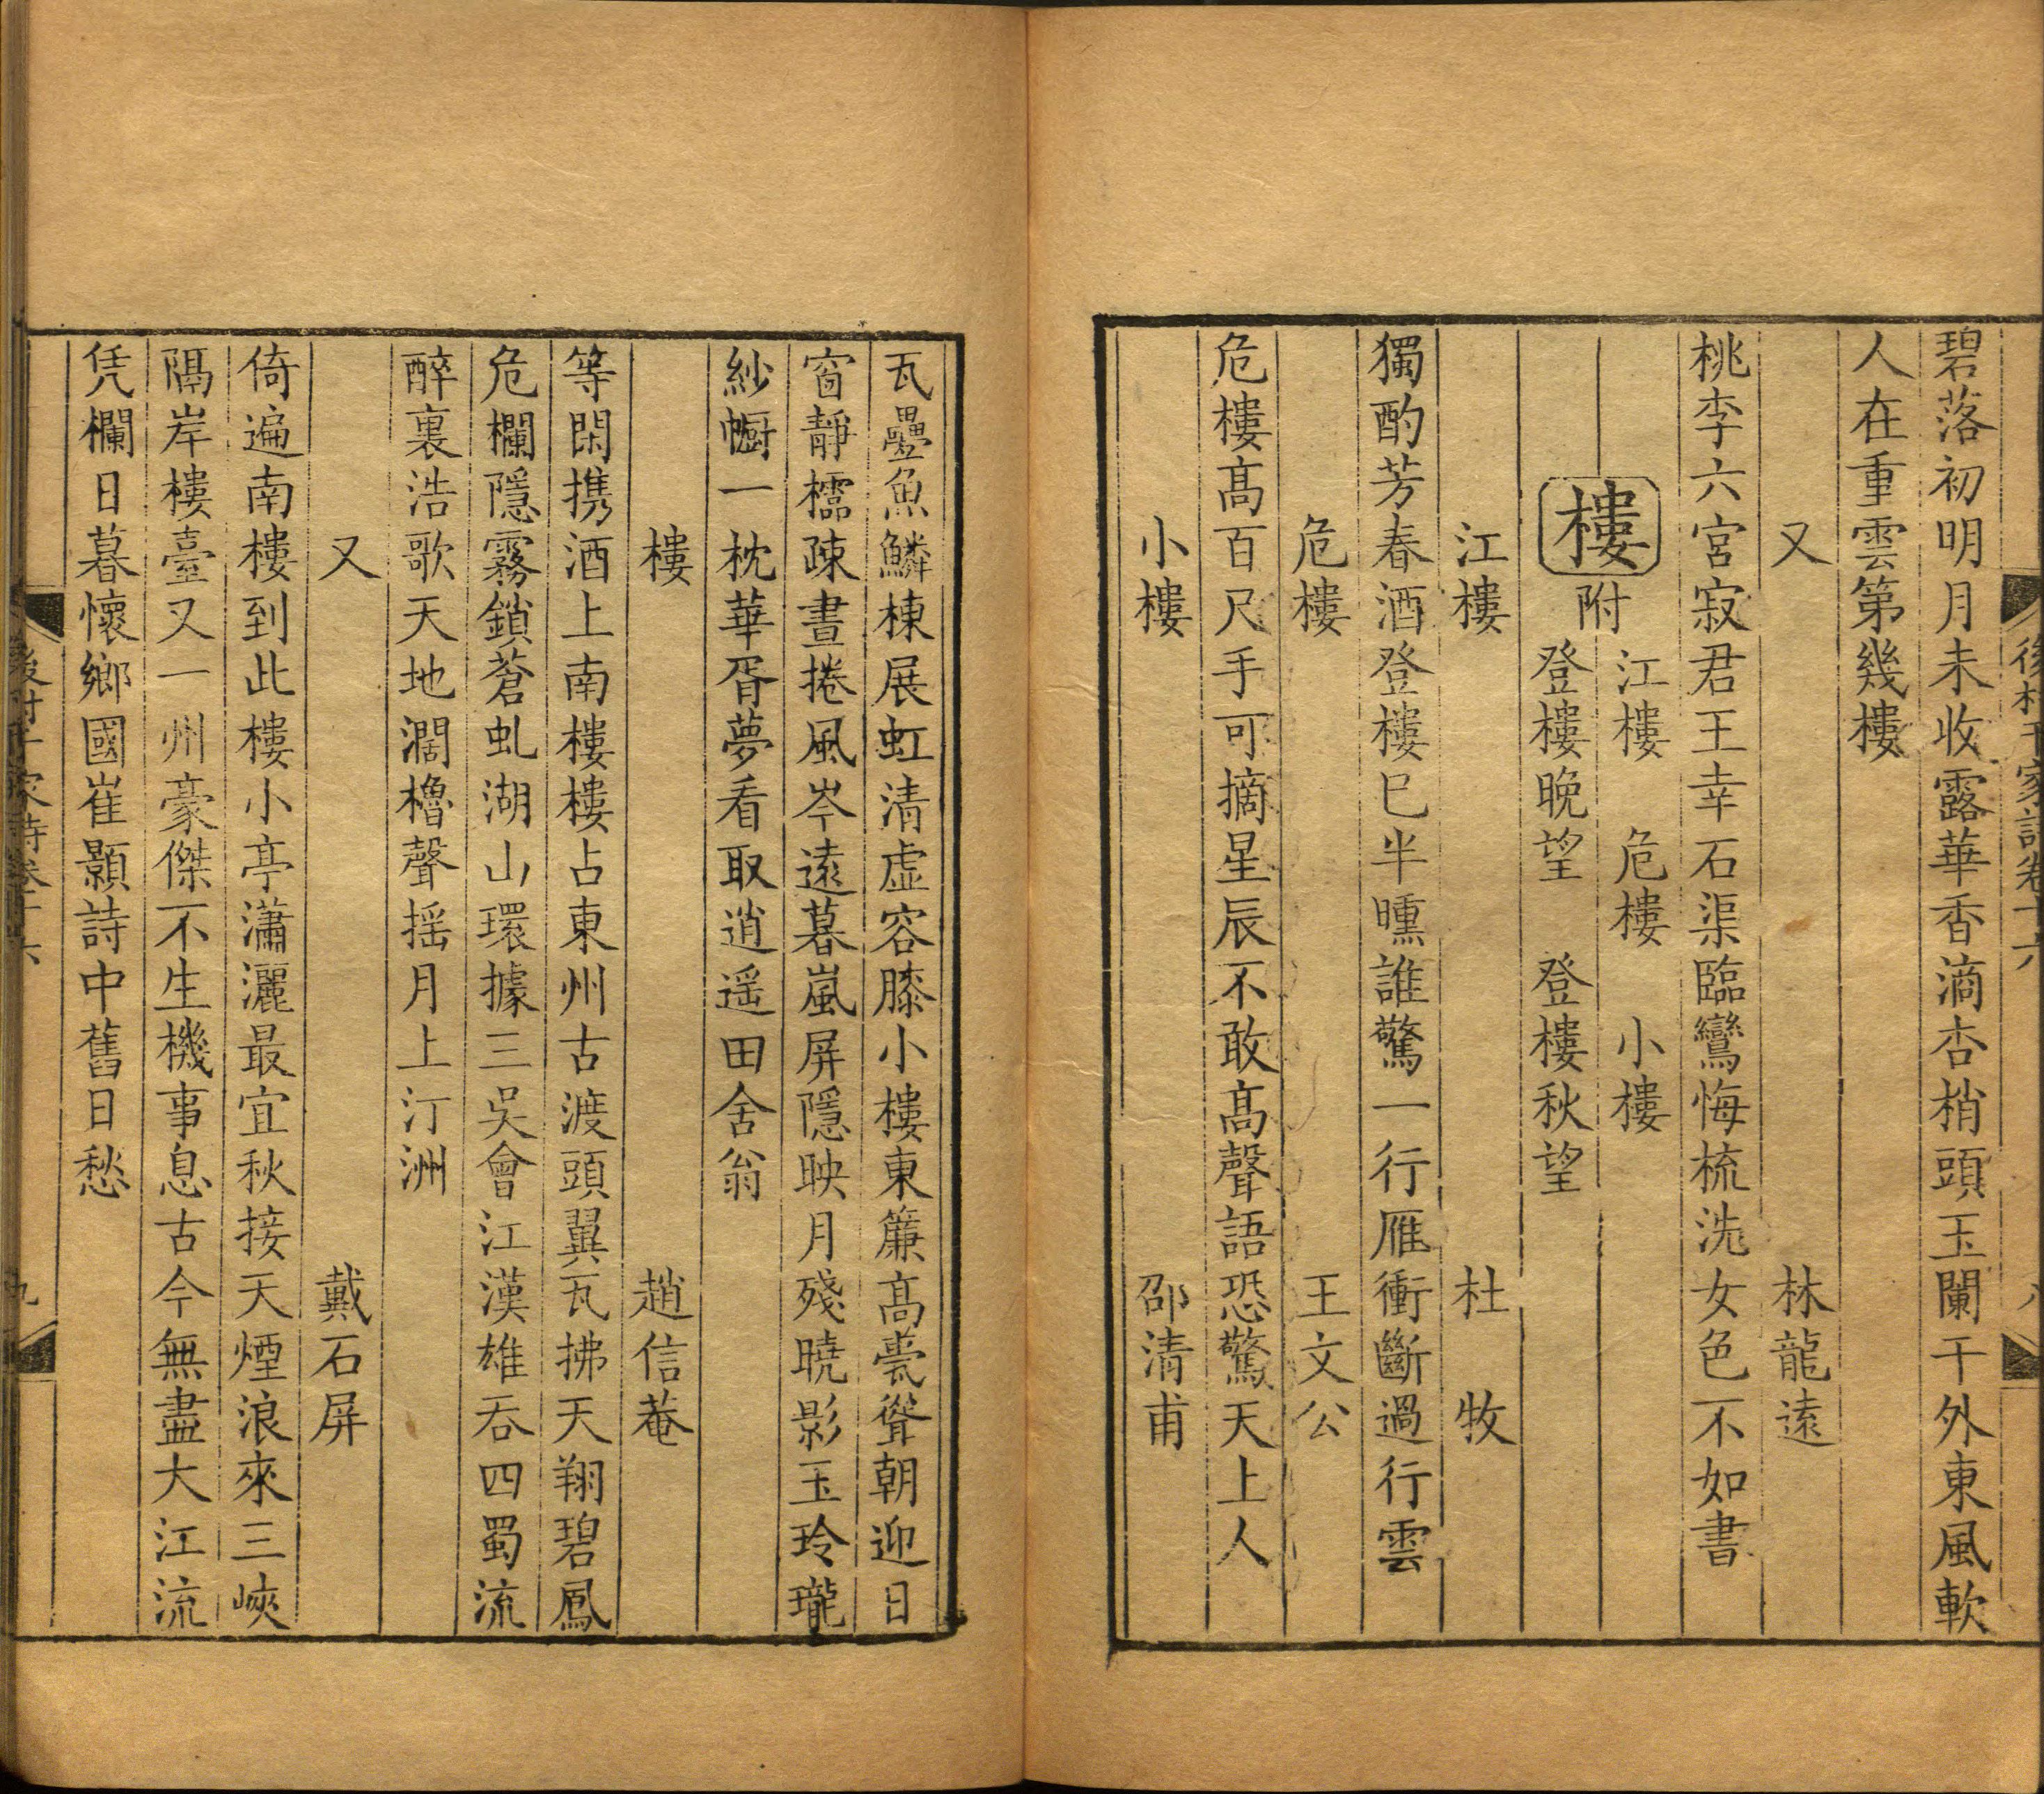 後村千家詩卷十六
八
碧落初明月未收露華香滴杏梢頭玉闌干外東風軟
人在重雲第幾樓
又 林龍遠
桃李六宮寂君王幸石渠臨鸞悔梳洗女色不如書
樓 附 江樓 危樓 小樓
登樓晚望 登樓秋望
江樓 杜牧
獨酌芳春酒登樓巳半曛誰驚一行雁衝斷過行雲
危樓 王文公
危樓髙百尺手可摘星辰不敢髙聲語恐驚天上人
小樓 邵清甫
瓦疊魚鱗棟展虹清虚容膝小樓東簾髙甍聳朝迎日
窗靜櫺疎晝捲風岑遠暮嵐屏隱映月殘曉影玉玲瓏
紗幮一枕華胥夢看取逍遥田舍翁
樓 趙信菴
等閑携酒上南樓樓占東州古渡頭翼瓦拂天翔碧鳳
危欄隱霧鎖蒼虬湖山環據三吳會江漢雄吞四蜀流
醉裏浩歌天地濶櫓聲揺月上汀洲
又 戴石屏
倚遍南樓到此樓小亭瀟灑最宜秋接天煙浪來三峽
隔岸樓臺又一州豪傑不生機事息古今無盡大江流
凭欄日暮懷鄉國崔顥詩中舊日愁
後村千家詩卷十六
九